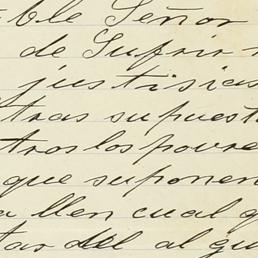 ble Señor
de Sufrir
justisias
tras supuest
tros los povre
que suponen
a llen cual q
tas del al gu